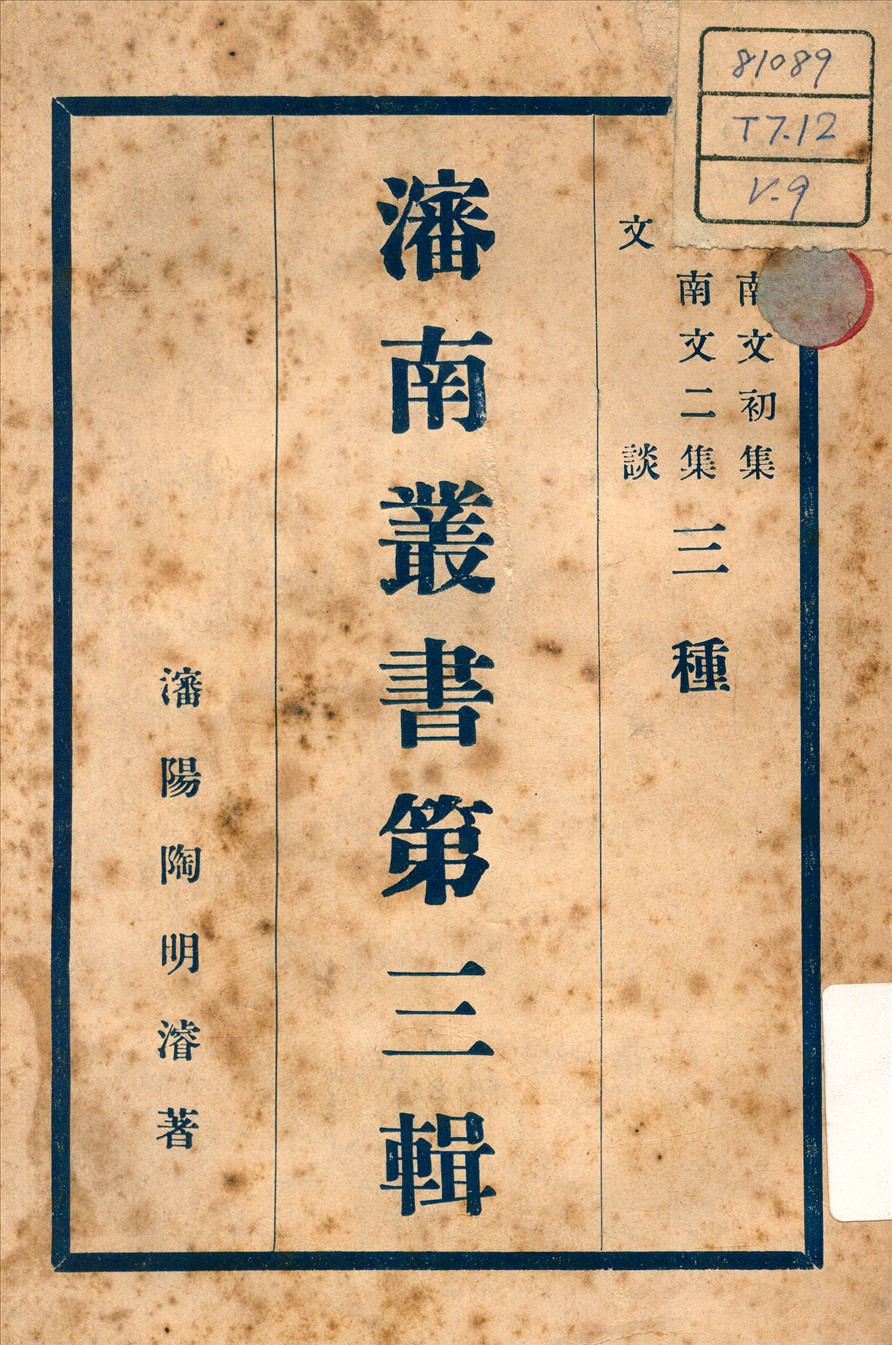 81089
T7.12
V-9
南文初集
南文二集
文談
三種
瀋南叢書第三輯
瀋陽陶明濬著